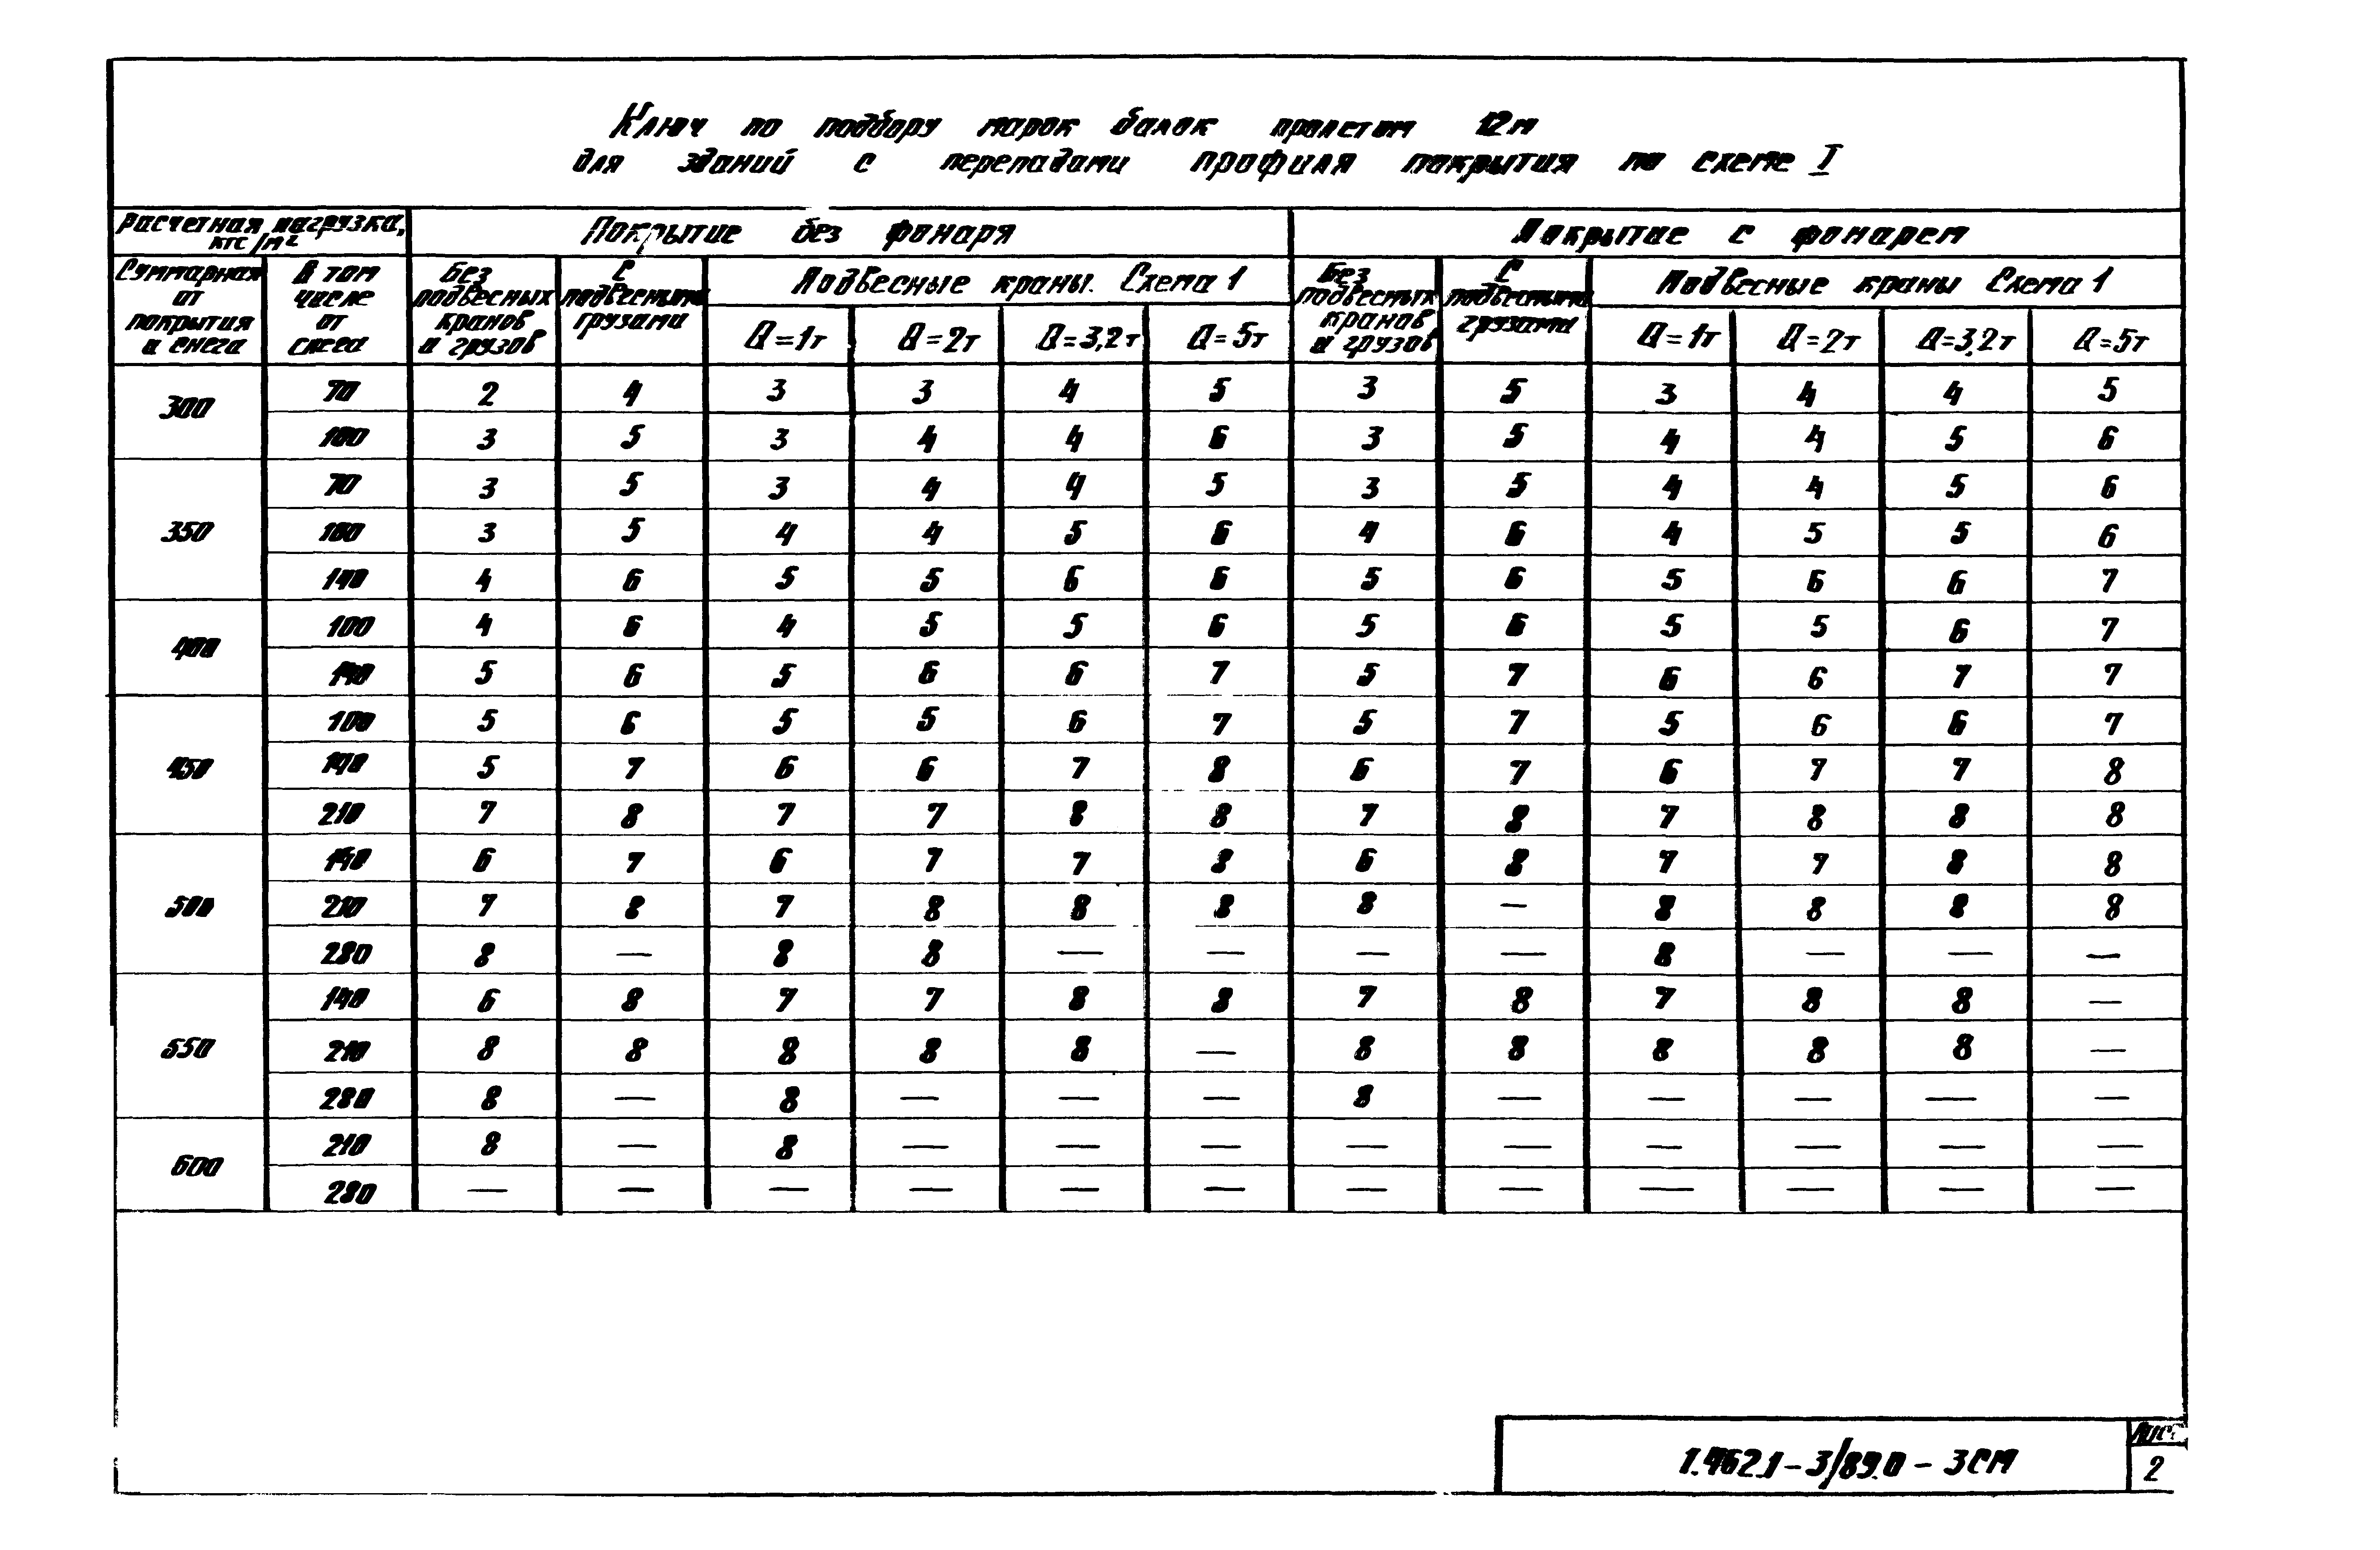 Ключ по подбору марок балок пролетом 12м
для зданий с перепадами профиля покрытия по схеме I
Расчетная нагрузка, кгс/м2
Покрытие без фонаря
Покрытие с фонарем
Суммарная от покрытия и снега
В том числе от снега
Без подвесных кранов и грузов
С подвесными грузами
Подвесные краны. Схема 1
Без подвесных кранов и грузов
С подвесными грузами
Подвесные краны Схема 1
Q=1т Q=2т Q=3,2т Q=5т
Q=1т Q=2т Q=3,2т Q=5т
300 70 2 4 3 3 4 5 3 5 3 4 4 5
100 3 5 3 4 4 6 3 5 4 4 5 6
350 70 3 5 3 4 4 5 3 5 4 4 5 6
100 3 5 4 4 5 6 4 6 4 5 5 6
140 4 6 5 5 6 6 5 6 5 6 6 7
400 100 4 6 4 5 5 6 5 6 5 5 6 7
140 5 6 5 6 6 7 5 7 6 6 7 7
450 100 5 6 5 5 6 7 5 7 5 6 6 7
140 5 7 6 6 7 8 6 7 6 7 7 8
210 7 8 7 7 8 8 7 8 7 8 8 8
500 140 6 7 6 7 7 8 6 8 7 7 8 8
210 7 8 7 8 8 8 8 — 8 8 8 8
280 8 — 8 8 — — — — 8 — — —
550 140 6 8 7 7 8 8 7 8 7 8 8 —
210 8 8 8 8 8 — 8 8 8 8 8 —
280 8 — 8 — — — 8 — — — — —
600 210 8 — 8 — — — — — — — — —
280 — — — — — — — — — — — —
1.462.1-3/89.0-3СМ
Лист
2